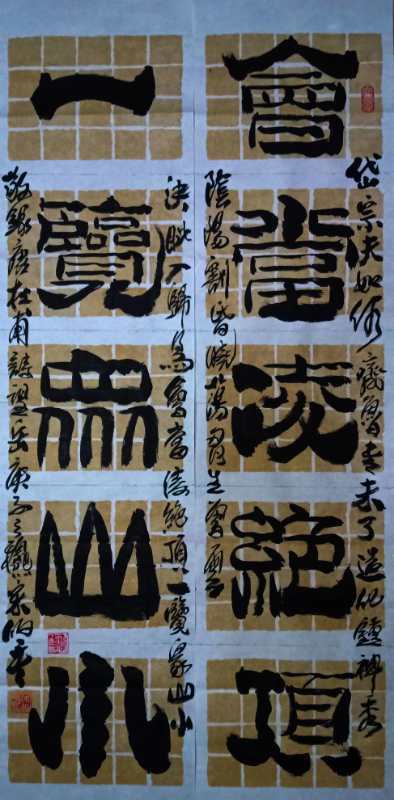 會當凌絕頂
一覽眾山小
岱宗夫如何齊魯青未了造化鍾神秀
陰陽割昏曉蕩胸生層雲
決眥入歸鳥會當凌絕頂一覽眾山小
敬錄唐杜甫詩望岳庚子之